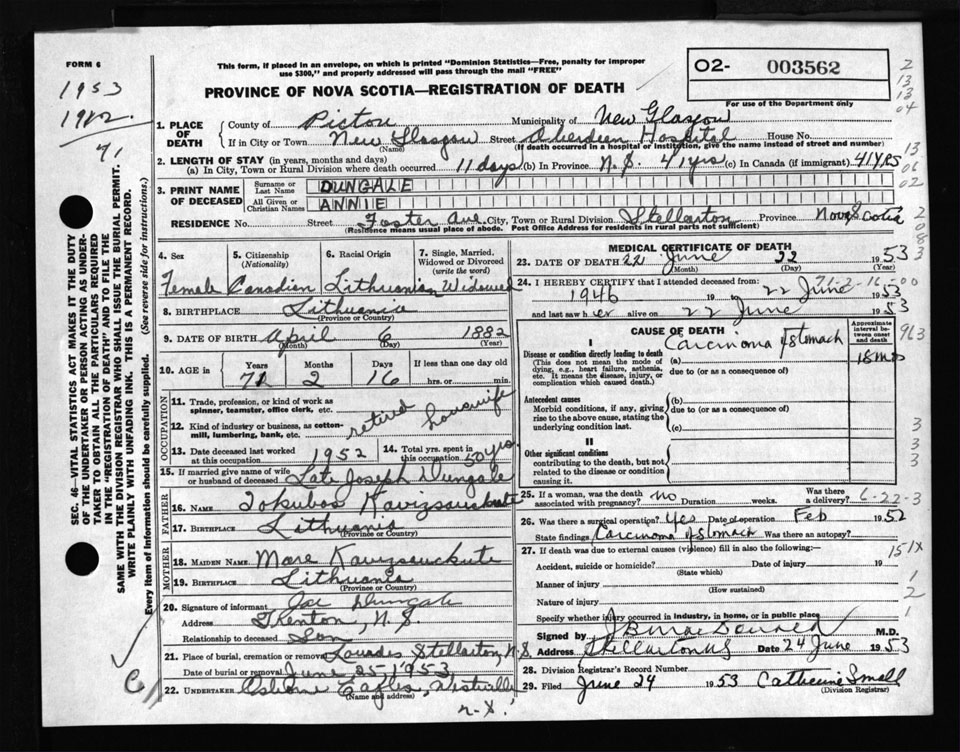 FORM 6
This form, if placed in an envelope, on which is printed "Dominion Statistics—Free, penalty for improper
use $300," and properly addressed will pass through the mail "FREE"
02- 003562
For use of the Department only
1953
1912.
71
PROVINCE OF NOVA SCOTIA—REGISTRATION OF DEATH
1. PLACE OF DEATH
County of Pictou Municipality of New Glasgow
If in City or Town New Glasgow Street Aberdeen Hospital House No.
(Name) (If death occurred in a hospital or institution, give the name instead of street and number)
2. LENGTH OF STAY (in years, months and days)
(a) In City, Town or Rural Division where death occurred 11 days (b) In Province N.S. 41 yrs (c) In Canada (if immigrant) 41 YRS
3. PRINT NAME OF DECEASED
Surname or Last Name DUNGALE
All Given or Christian Names ANNIE
RESIDENCE No. Street Foster Ave. City, Town or Rural Division Stellarton Province Nova Scotia
(Residence means usual place of abode. Post Office Address for residents in rural parts not sufficient)
SEC. 46—VITAL STATISTICS ACT MAKES IT THE DUTY
OF THE UNDERTAKER OR PERSON ACTING AS UNDER-
TAKER TO OBTAIN ALL THE PARTICULARS REQUIRED
IN THE "REGISTRATION OF DEATH" AND TO FILE THE
SAME WITH THE DIVISION REGISTRAR WHO SHALL ISSUE THE BURIAL PERMIT.
WRITE PLAINLY WITH UNFADING INK. THIS IS A PERMANENT RECORD.
Every item of information should be carefully supplied. (See reverse side for instructions.)
4. Sex 5. Citizenship (Nationality) 6. Racial Origin 7. Single, Married, Widowed or Divorced (write the word)
Female Canadian Lithuanian Widowed
8. BIRTHPLACE Lithuania
(Province or Country)
9. DATE OF BIRTH April 6 1882
(Month) (Day) (Year)
10. AGE in Years Months Days If less than one day old
71 2 16 hrs. or min.
OCCUPATION
11. Trade, profession, or kind of work as
spinner, teamster, office clerk, etc.
12. Kind of industry or business, as cotton-
mill, lumbering, bank, etc. retired housewife
13. Date deceased last worked at this occupation 1952 14. Total yrs. spent in this occupation 50 yrs.
15. If married give name of wife
or husband of deceased Late Joseph Dungale
FATHER
16. Name
17. Birthplace Lithuania
(Province or Country)
MOTHER
18. MAIDEN NAME. Mare
19. BIRTHPLACE Lithuania
(Province or Country)
20. Signature of informant Joe Dungale
Address Trenton, N.S.
Relationship to deceased Son
21. Place of burial, cremation or removal Lourdes Stellarton, N.S.
Date of burial or removal June 25 - 1953
22. UNDERTAKER
(Name and address)
MEDICAL CERTIFICATE OF DEATH
23. DATE OF DEATH 22 June 22 1953
(Month) (Day) (Year)
24. I HEREBY CERTIFY that I attended deceased from:
1946 19 22 June 1953
and last saw her alive on 22 June 1953
CAUSE OF DEATH
Approximate interval between onset and death
I
Disease or condition directly leading to death (a) Carcinoma of Stomach 18 mo
(This does not mean the mode of
dying, e.g., heart failure, asthenia,
etc. It means the disease, injury, or
complication which caused death.)
due to (or as a consequence of)
Antecedent causes
Morbid conditions, if any, giving
rise to the above cause, stating the
underlying condition last.
(b)
due to (or as a consequence of)
(c)
II
Other significant conditions
contributing to the death, but not
related to the disease or condition
causing it.
25. If a woman, was the death associated with pregnancy? no Duration weeks. Was there a delivery? 6-22-3
26. Was there a surgical operation? Yes Date of operation Feb 1952
State findings Carcinoma of Stomach Was there an autopsy?
27. If death was due to external causes (violence) fill in also the following:—
Accident, suicide or homicide? Date of injury 19
(State which)
Manner of injury
(How sustained)
Nature of injury
Specify whether injury occurred in industry, in home, or in public place
Signed by M.D.
Address Stellarton NS Date 24 June 1953
28. Division Registrar's Record Number
29. Filed June 24 1953 Catherine Small
(Division Registrar)
151X